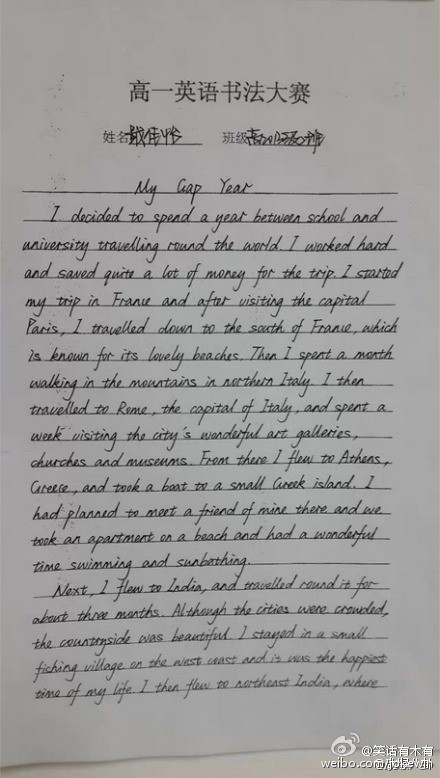 高一英语书法大赛
姓名 班级
My Gap Year
I decided to spend a year between school and
university travelling round the world. I worked hard
and saved quite a lot of money for the trip. I started
my trip in France and after visiting the capital
Paris, I travelled down to the south of France, which
is known for its lovely beaches. Then I spent a month
walking in the mountains in northern Italy. I then
travelled to Rome, the capital of Italy, and spent a
week visiting the city's wonderful art galleries,
churches and museums. From there I flew to Athens,
Greece, and took a boat to a small Greek island. I
had planned to meet a friend of mine there and we
took an apartment on a beach and had a wonderful
time swimming and sunbathing.
Next, I flew to India, and travelled round it for
about three months. Although the cities were crowded,
the countryside was beautiful. I stayed in a small
fishing village on the west coast and it was the happiest
time of my life. I then flew to northeast India, where
@笑话有木有